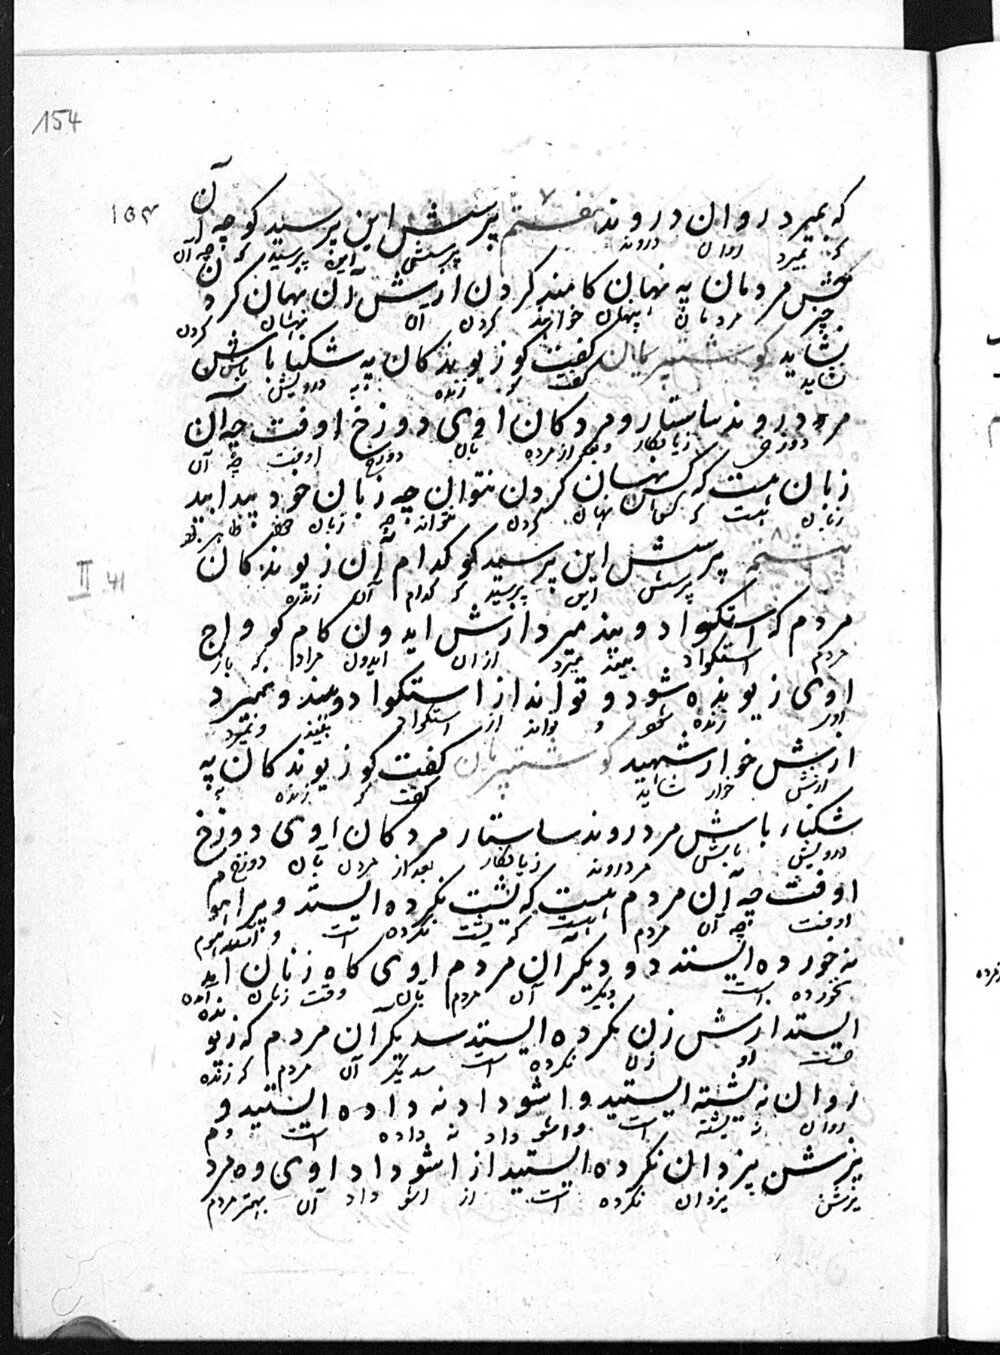 154
۱۵۴
که بمیرد روان دروند هفتم پرسش این پرسید کو چه آن
که بمیرد روان دروند پرسش این پرسید که چه آن
مردمان په نهان کامند کردن ازش آن نهان کرد
چیز مردمان پنهان خواهند کردن آن نهان کردن
نشاید کوشت پریان گفت کو زیوندکان په شکنا باش
نشاید گفت که زنده به درویش باش
مر دروند ساستار و مردکان اوی دوزخ اوفت چه آن
دوزخی زیانکار و بعد از مرده بآن دوزخ اوفت چه آن
زبان هست که کس نهان کردن نتوان چه زبان خود پیدا اید
زبان هست که کسان نهان کردن نتواند چه زبان خود ظاهر
۸
هشتم پرسش این پرسید کو کدام آن زیوندکان
پرسش این پرسید که کدام آن زنده
II 41
مردم که استکواد ویند میرد ازش ایدون کام کو واج
مردم استکواد بیند میرد از آن ایدون مراد که باز
اوی زیونده شود دو تواند از استکواد ویند و بمیرد
اوی زنده شود و تواند از استکواد بیند و بمیرد
ازش خوار شهید کوشت پریان گفت کو زیوندکان په
ازش خوار شاید گفت که زنده به
شکنا باش مر دروند ساستار مردکان اوی دوزخ
درویش باش مر دروند زیانکار بعد از مردن بآن دوزخ
اوفت چه آن مردم هست که یشت نکرده ایستد و پراهوم
اوفت چه آن مردم هست که یشت نکرده است و هوم
نه خورده ایستد دو دیگر آن مردم اوی گاه زنان اید
نخورده است دیگر آن مردم بآن وقت زنان آمده
ایستد ازش زن نکرده ایستد سدیگر آن مردم که زیونده
است او زن نکرده است سدیگر آن مردم که زنده
روان نه یشته ایستید و اشوداد نه داده ایستید و
روان نه یشته است و اشوداد نه داده است و
یزشن یزدان نکرده ایستید از اشوداد اوی وه مرد
یزشن یزدان نکرده است از اشوداد آن بهتر مردم